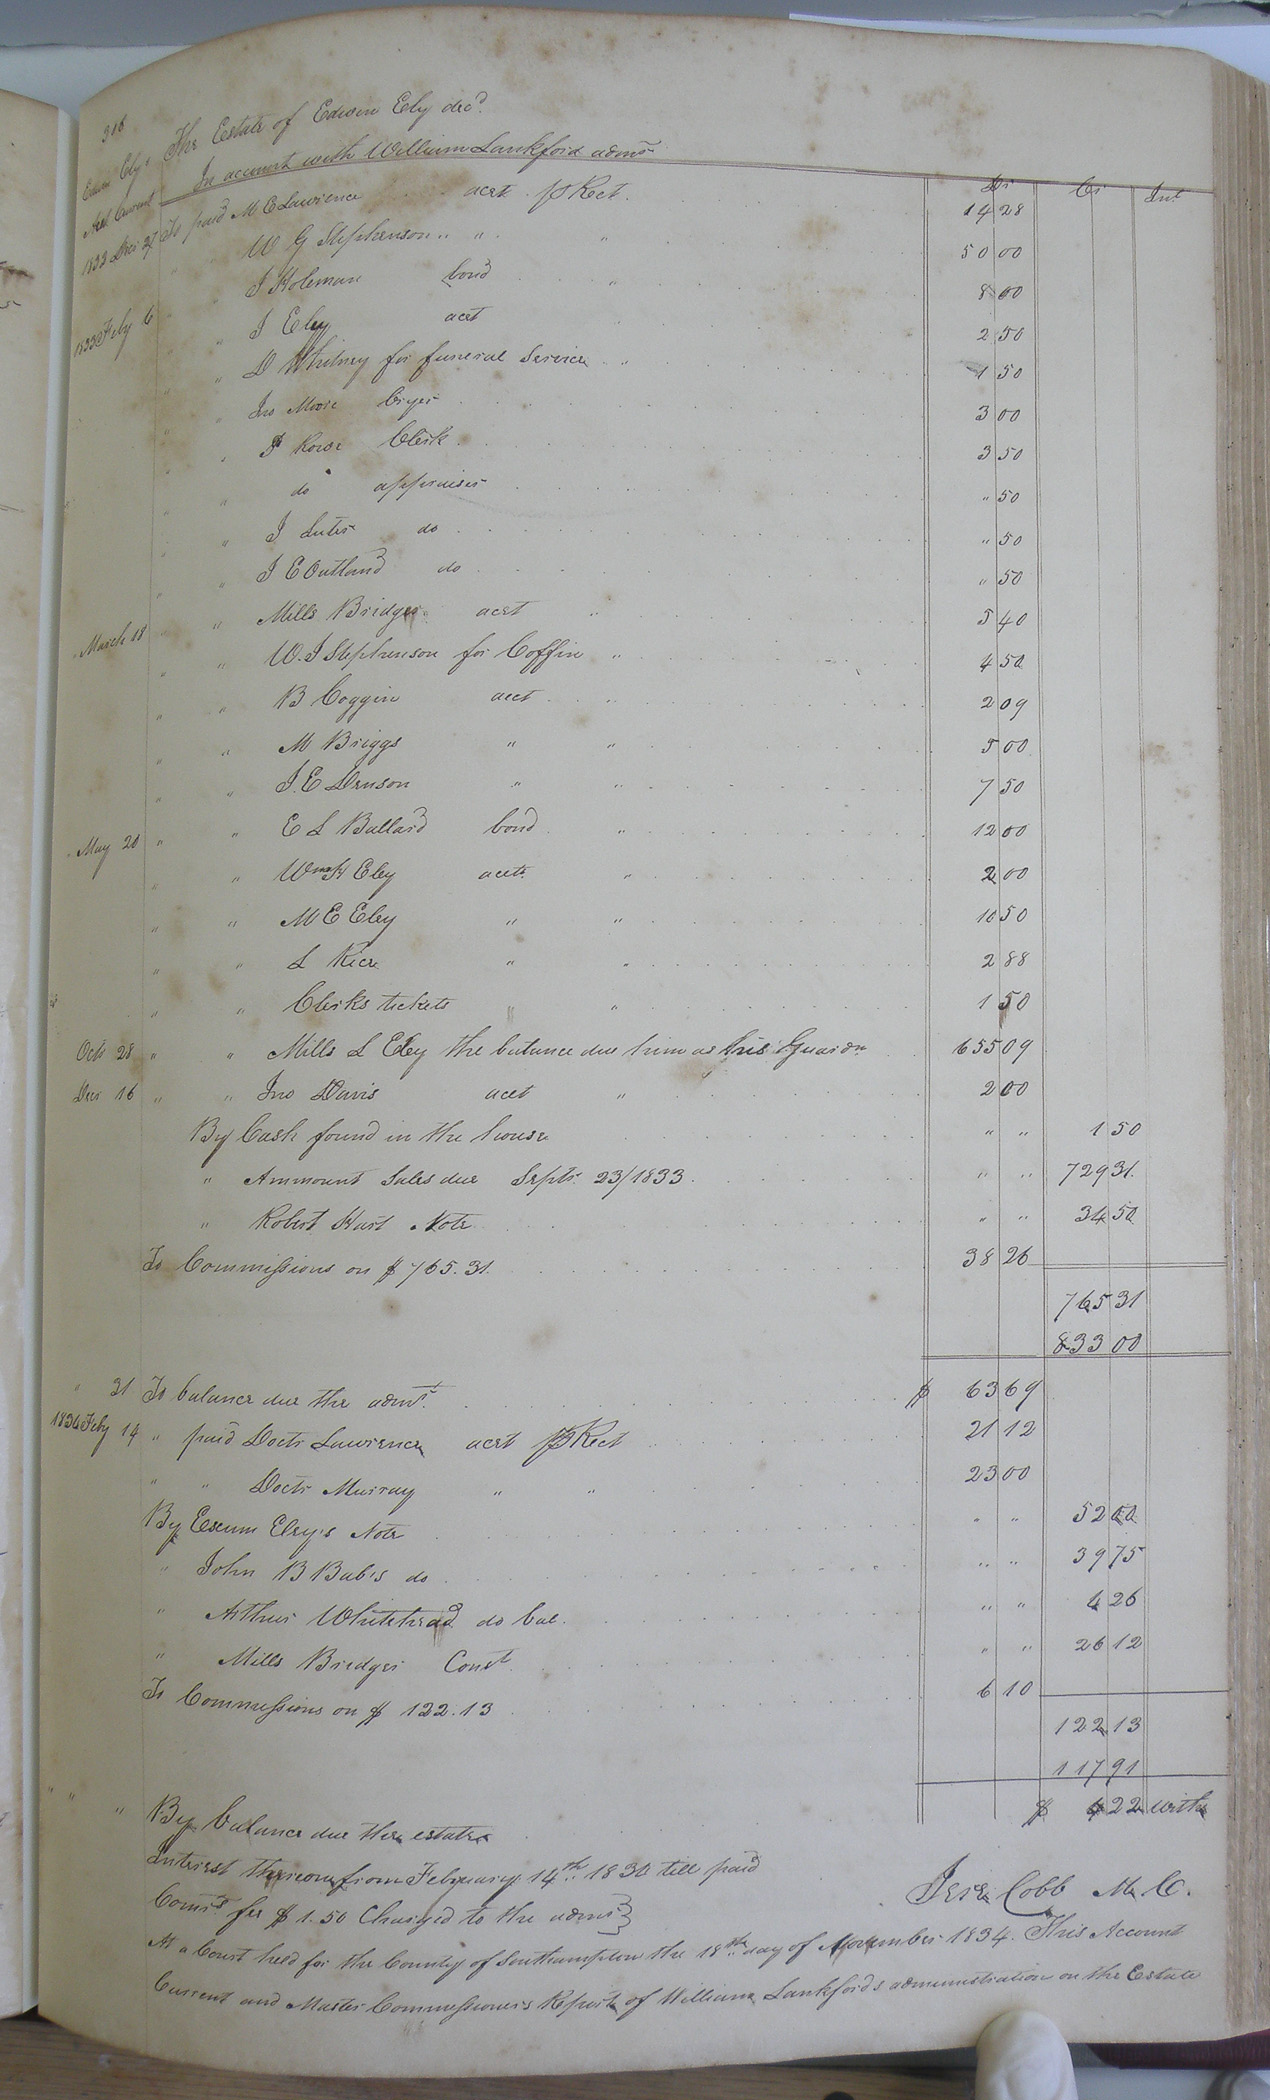 318
The Estate of Edwin Ely decd
In account with William Lankford admr
Edwin Ely's
Acct Current
Dr Cr Int
1832 Dec 27 To paid M E Lawrence acct pr Rect 14 28
" W G Stephenson " " " 50 00
" J Holeman bond " 8 00
1833 Feby 6 " J Eley acct 2 50
" D Whitney for funeral Service " 1 50
" " Jno Moore Cryer 3 00
" " Rowe Clerk 3 50
" " do appraiser " 50
" " J Luter do " 50
" " J E Outland do " 50
" " Mills Bridger acct " 5 40
March 18 " W. J Stephenson for Coffin " 4 50
" " B Coggin acct " 2 09
" " M Briggs " " 5 00
" " J. E Denson " " 7 50
May 20 " " E L Ballard bond " 12 00
" " Wm H Eley acct " 2 00
" " M E Eley " " 10 50
" " L Rice " " 2 88
" " Clerks tickets " " 1 50
Octr 28 " " Mills L Eley the balance due him as his Guardn 655 09
Decr 16 " " Jno Davis acct " 2 00
By Cash found in the house " " 1 50
" Ammount Sales due Septr 23/1833 " " 729 31
" Robert Hart Note " " 34 50
To Commissions on $765.31 38 26
765 31
833 00
" 31 To balance due the admr $ 63 69
1834 Feby 14 " paid Doctr Lawrence acct pr Rect 21 12
" " Doctr Murray " " 23 00
By Exum Eley's Note " " 52 00
" John B Bab's do " " 39 75
" Arthur Whitehead do bal. " " 4 26
" Mills Bridger Const. " " 26 12
To Commissions on $ 122.13 6 10
122 13
117 91
" " " By balance due the estate $ 4 22 with
Interest thereon from February 14th 1834 till paid
Comrs fee $1.50 Charged to the admr } Jere Cobb M. C.
At a Court held for the County of Southampton the 18th day of November 1834. This Account
Current and Master Commissioners Report of William Lankfords administration on the Estate